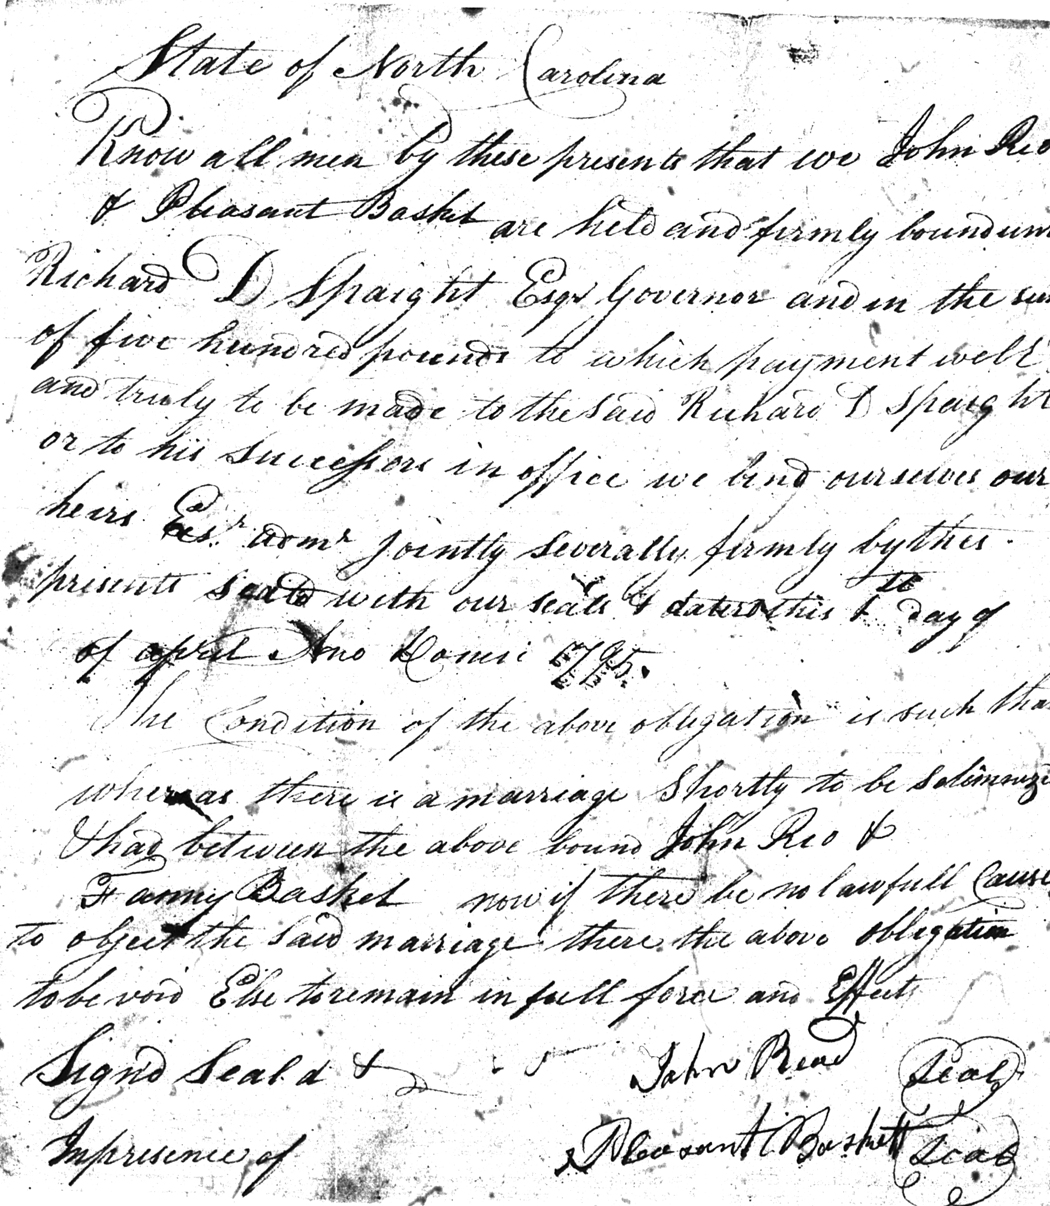 State of North Carolina
Know all men by these presents that we John Reo
& Pleasant Basket are held and firmly bound un
Richard D Spaight Esqr Governor and in the su
of five hundred pounds to which payment well
and truly to be made to the said Richard D Spaight
or to his successors in office we bind ourselves our
heirs Exs.r admr jointly severally firmly by thes
presents seald with our seals & dated this 1 day of
of april Ano Domini 1795.
The Condition of the above obligation is such tha
whereas there is a marriage Shortly to be
& had between the above bound John Reo &
Fanny Basket now if there be no lawfull Cause
to object the said marriage there the above obligation
to be void Else to remain in full force and Effect
Signd Seal.d &
John Read Seal
In presence of
Pleasant Baskett Seal